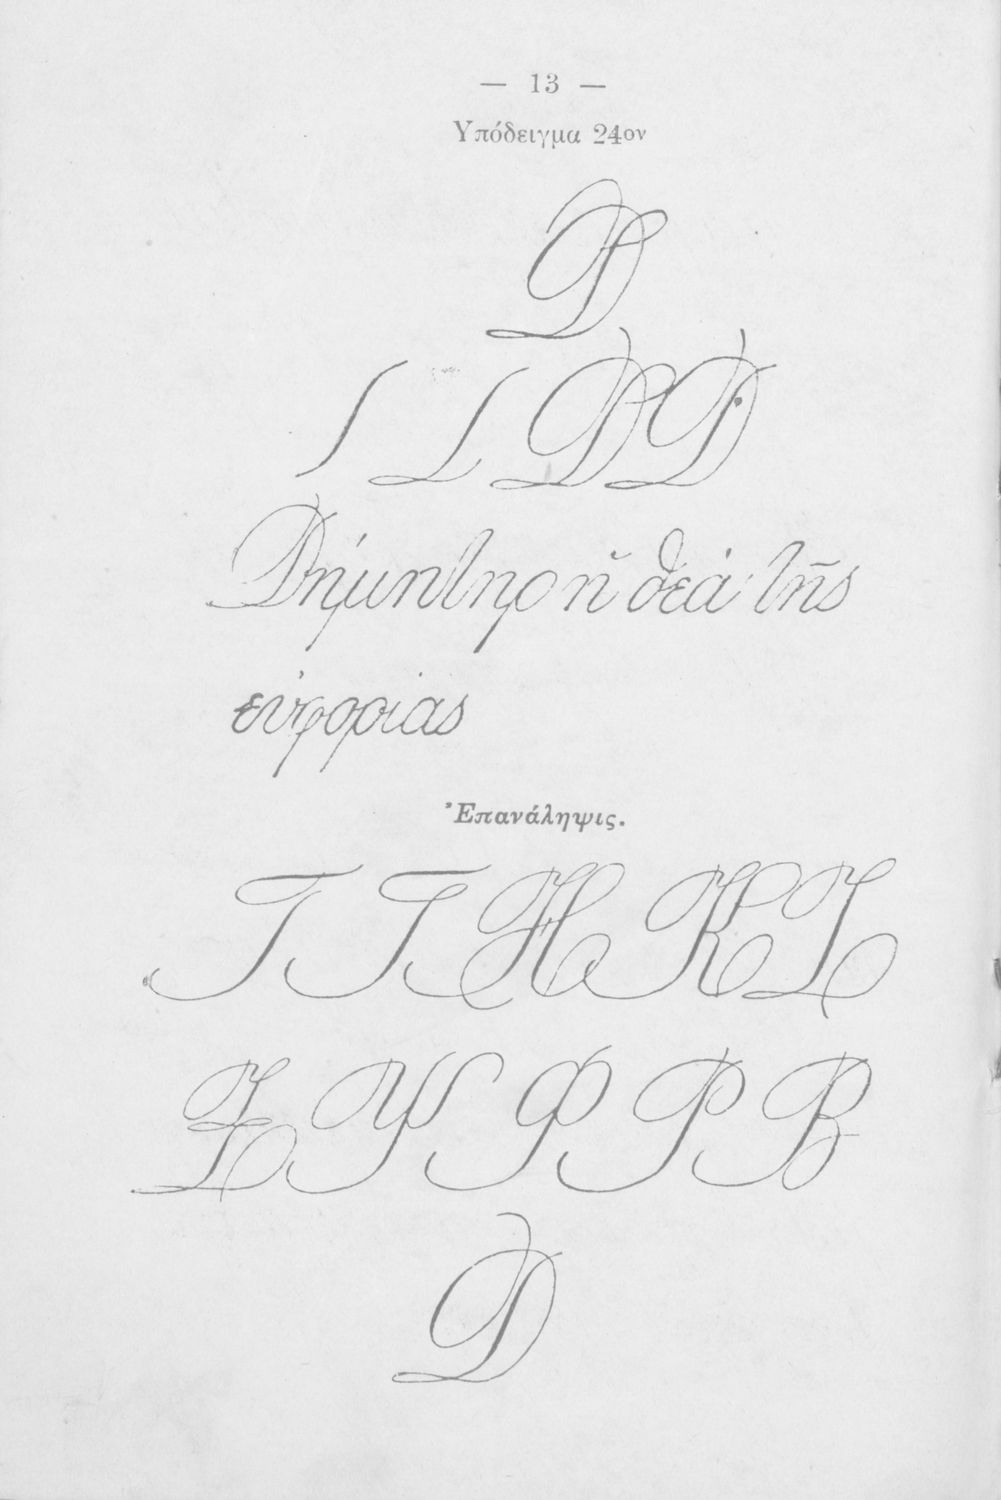 — 13 —
Υπόδειγμα 24ον
Δ
Δ Δ
Δήμητηρ ἡ θεά τῆς
εὐφορίας
Ἐπανάληψις.
Η Κ Ζ
Ξ Ψ Φ Ρ Β
Δ